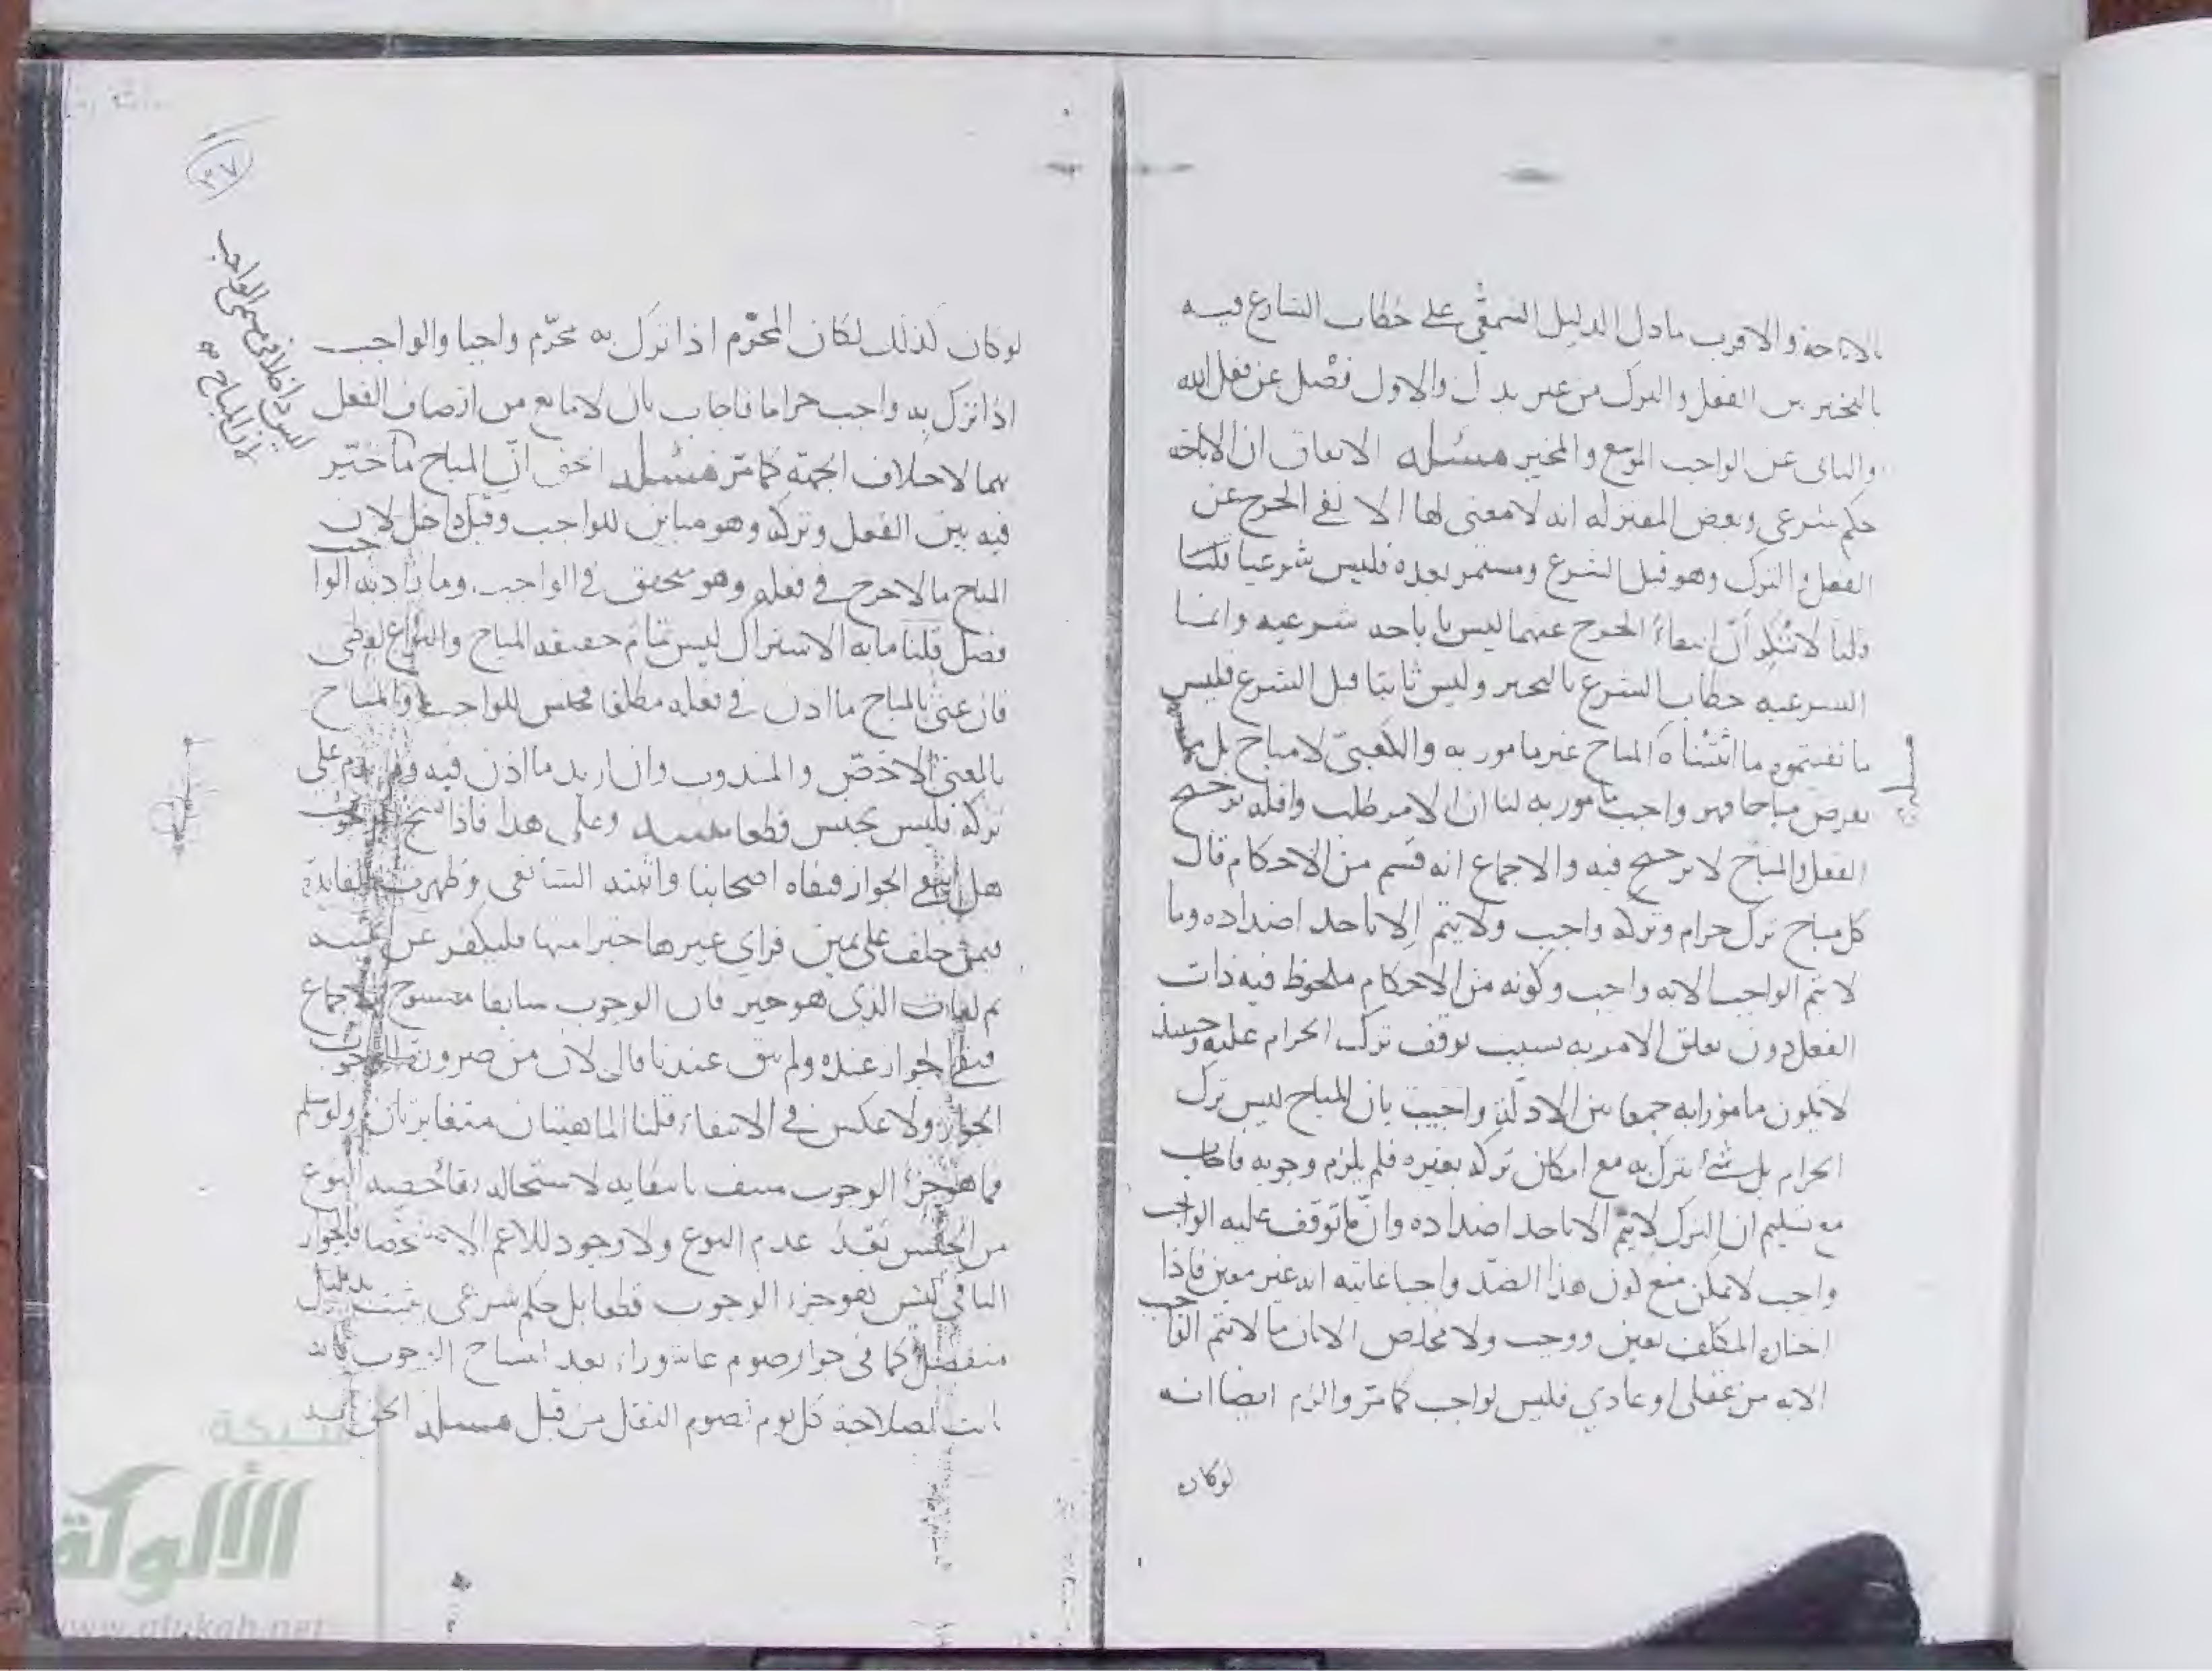 بالاباحة والاقرب ما دل الدليل السمعي على خطاب الشارع فيه
بالتخيير بين الفعل والترك من غير بدل والاول فصل عن فعل الله
والثاني عن الواجب الموسع والمخير مسئلة الاتفاق ان الاباحة
حكم شرعي وبعض المعتزلة انه لا معنى لها الا نفي الحرج عن
الفعل والترك وهو قبل الشرع ومستمر بعده فليس شرعيا قلنا
قلنا لا ننكر أن انتفاء الحرج عنهما ليس باباحة شرعية وانما
الشرعية خطاب الشرع بالتخيير وليس ثابتا قبل الشرع فليس
ما نفيتموه ما اثبتناه المباح غير مامور به والكعبي لا مباح بل ما
يفرض مباحا فهو واجب مامور به لنا ان الامر طلب واقله ترجيح
الفعل والمباح لا ترجيح فيه والاجماع انه قسم من الاحكام قال
كل مباح ترك حرام وتركه واجب ولا يتم الا باحد اضداده وما
لا يتم الواجب الا به واجب وكونه من الاحكام ملحوظ فيه ذات
الفعل دون تعلق الامر به بسبب توقف ترك الحرام عليه وحينئذ
لا يكون مامورا به جمعا بين الادلة واجيب بان المباح ليس ترك
الحرام بل شئ يترك به مع امكان تركه بغيره فلم يلزم وجوبه فاجاب
مع تسليم ان الترك لا يتم الا باحد اضداده وان ما توقف عليه الواجب
واجب لا يمكن منع كون هذا الضد واجبا غايته انه غير معين فاذا
اختاره المكلف تعين ووجب ولا مخلص الا بان ما لا يتم الواجب
الا به من عقلي او عادي فليس بواجب كما مر والزم ايضا انه
لو كان
٣٧
ليس داخلا في مسمى الواجب
لان المباح
لو كان كذلك لكان المحرّم اذا ترك به محرّم واجبا والواجب
اذا ترك به واجب حراما فاجاب بان لا مانع من اتصاف الفعل
بهما لاختلاف الجهة كما مر مسئلة الحق انّ المباح ما خيّر
فيه بين الفعل وتركه وهو مباين للواجب وقيل داخل لان
المباح ما لا حرج في فعله وهو متحقق في الواجب وما زاد به الواجب
فصل قلنا ما به الاشتراك ليس تمام حقيقة المباح والنزاع لفظي
فان عنى بالمباح ما اذن في فعله مطلقا فجنس للواجب والمباح
بالمعنى الاخصّ والمندوب وان اريد ما اذن فيه ولم يذم على
تركه فليس بجنس قطعا مسئلة وعلى هذا فاذا نسخ الوجوب
هل يبقى الجواز فنفاه اصحابنا واثبته الشافعي وظهرت الفائدة
فيمن حلف على يمين فراى غيرها خيرا منها فليكفر عن يمينه
ثم ليات الذي هو خير فان الوجوب سابقا منسوخ بالاجماع
فبقي الجواز عنده ولم يبق عندنا قال لان من ضرورة الوجوب
الجواز ولا عكس في الانتفاء قلنا الماهيتان متغايرتان ولو سلم
فما هو جزء الوجوب منتف بانتفائه لاستحالة بقاء حصة النوع
من الجنس بعد عدم النوع ولا وجود للاعم الا متخصصا فالجواز
الباقي ليس هو جزء الوجوب قطعا بل حكم شرعي يثبت بدليل
منفصل كما في جواز صوم عاشوراء بعد انتساخ الوجوب فانه
ثابت لصلاحية كل يوم لصوم النفل من قبل مسئلة الحق انه
شبكة
الألوكة
www.alukah.net